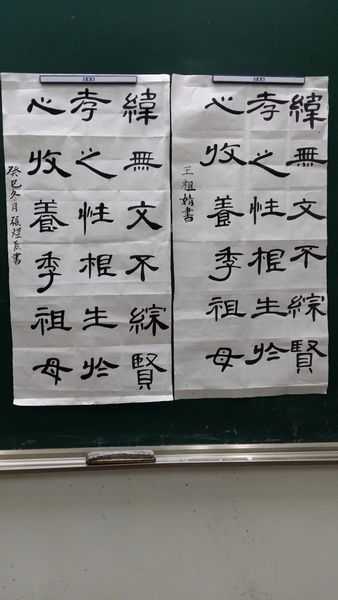 緯無文不綜賢
孝之性根生於
心收養季祖母
王祖娟書
緯無文不綜賢
孝之性根生於
心收養季祖母
癸巳冬月張書